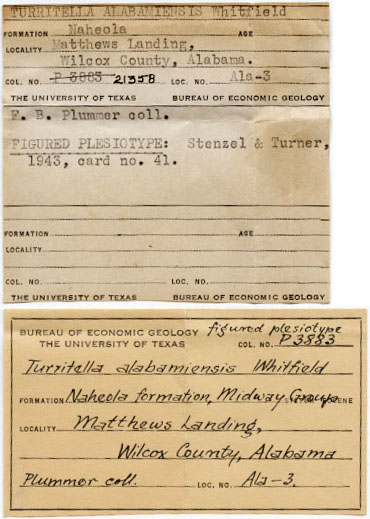 TURRITELLA ALABAMIENSIS Whitfield
FORMATION Naheola AGE
LOCALITY Matthews Landing,
Wilcox County, Alabama.
COL. NO. P 3883 21358 LOC. NO. Ala-3
THE UNIVERSITY OF TEXAS BUREAU OF ECONOMIC GEOLOGY
F. B. Plummer coll.
FIGURED PLESIOTYPE: Stenzel & Turner,
1943, card no. 41.
FORMATION AGE
LOCALITY
COL. NO. LOC. NO.
THE UNIVERSITY OF TEXAS BUREAU OF ECONOMIC GEOLOGY
BUREAU OF ECONOMIC GEOLOGY figured plesiotype
THE UNIVERSITY OF TEXAS COL. NO. P3883
Turritella alabamiensis Whitfield
FORMATION Naheola formation, Midway Group
LOCALITY Matthews Landing,
Wilcox County, Alabama
Plummer coll. LOC. NO. Ala-3.